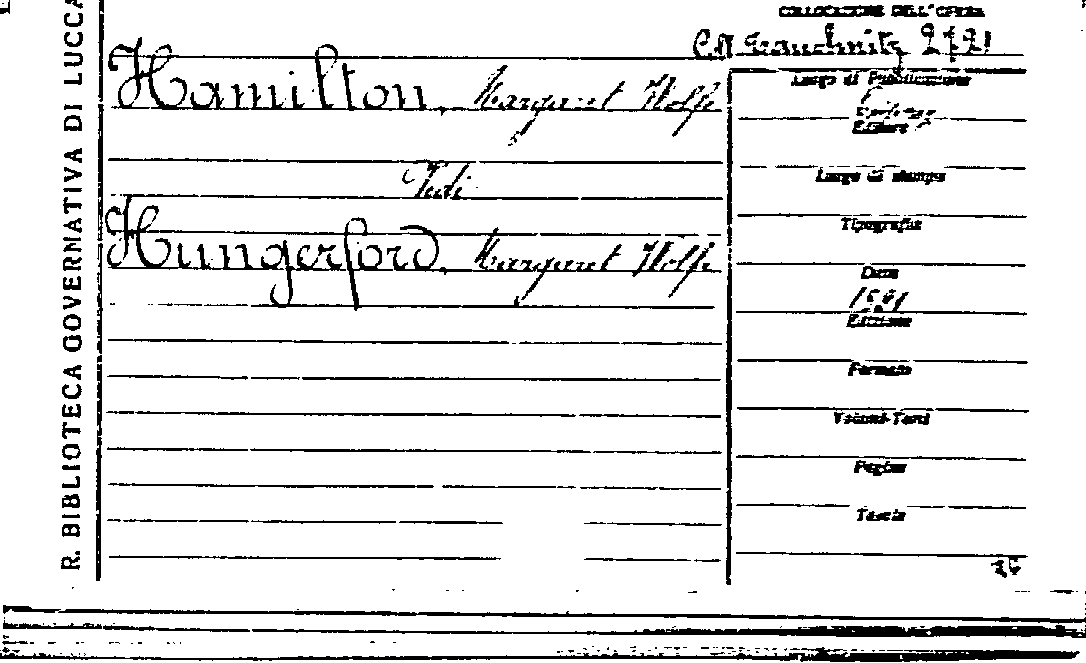 R. BIBLIOTECA GOVERNATIVA DI LUCCA
COLLOCAZIONE DELL'OPERA
Tauchnitz 2721
Hamilton, Margaret Wolfe
Vedi
Hungerford, Margaret Wolfe
Luogo di Pubblicazione
Editore
Luogo di stampa
Tipografia
Data
1891
Edizione
Formato
Volumi-Tomi
Pagine
Tavole